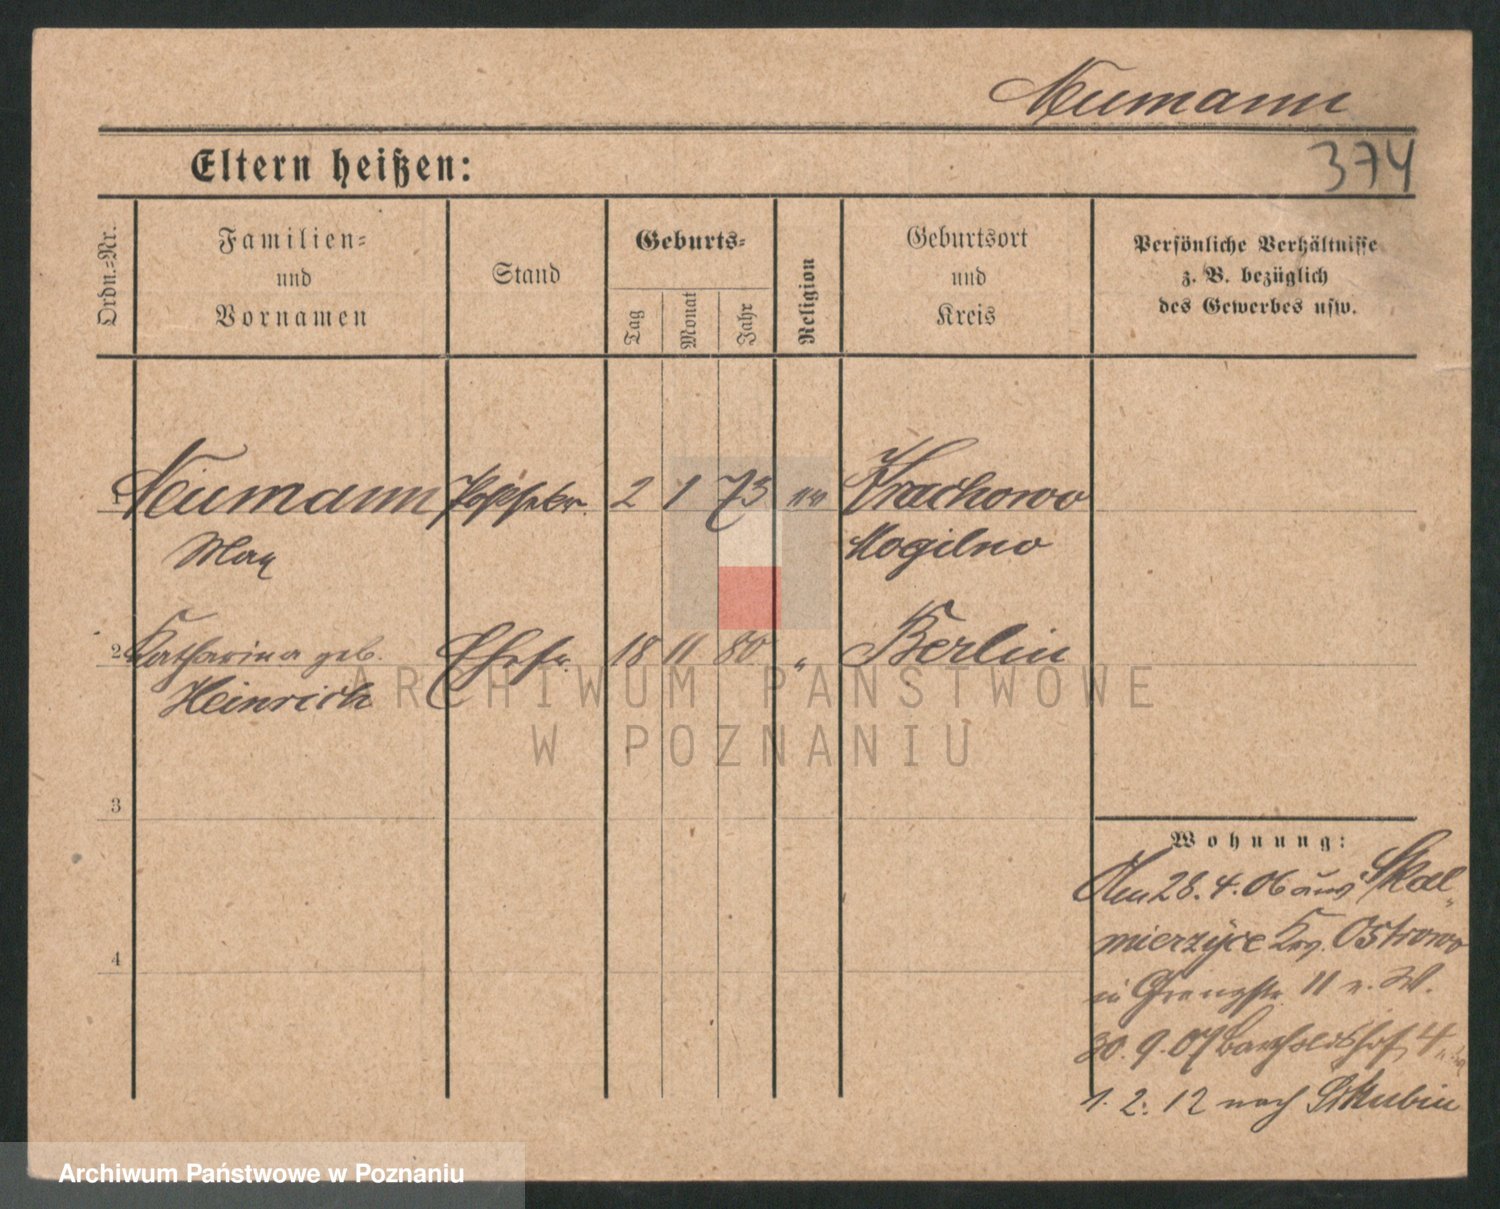 Neumann
374
Eltern heißen:
Ordn.-Nr.
Familien-
und
Vornamen
Stand
Geburts-
Tag
Monat
Jahr
Religion
Geburtsort
und
Kreis
Persönliche Verhältnisse
z. B. bezüglich
des Gewerbes usw.
1 Neumann Postsekr. 2 1 73 Krachowo
Max Mogilno
2 Katharina geb. Ehefr. 18 11 80 " Berlin
Heinrich
3
4
Wohnung:
Den 28.4.06 aus Skal-
mierzyce Krs. Ostrowo
in Grenzstr. 11 v. W.
30.9.07 4
1.2.12 nach Schubin
ARCHIWUM PAŃSTWOWE
W POZNANIU
Archiwum Państwowe w Poznaniu